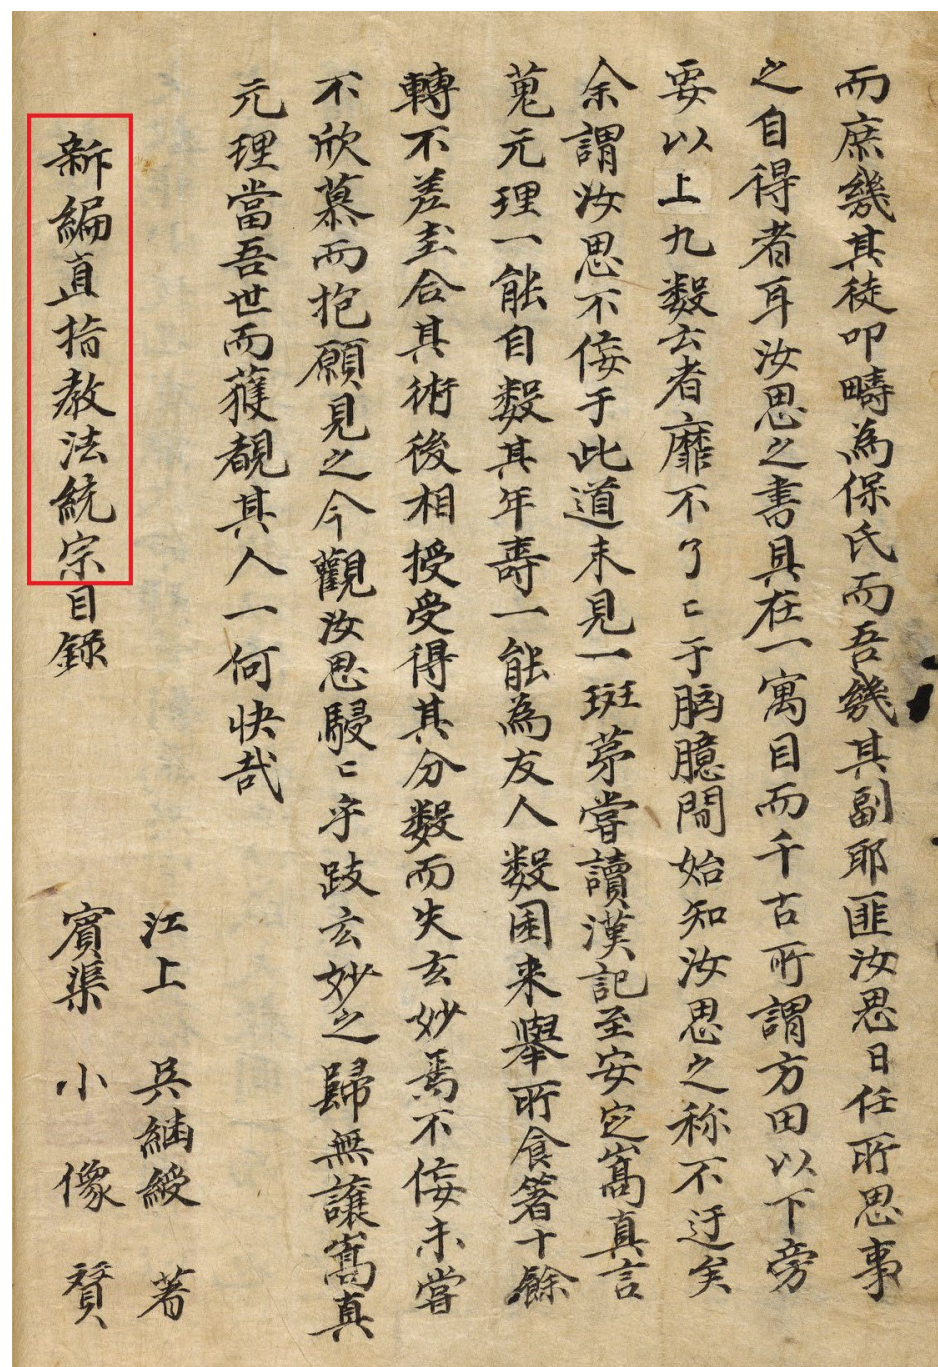 而庶幾其徒叩疇為保氏而吾幾其副耶匪汝思日任所思事
之自得者耳汝思之書具在一寓目而千古所謂方田以下旁
要以上九数云者靡不了〻于胸臆間始知汝思之称不迂矣
余謂汝思不佞于此道未見一斑茅嘗讀漢記至安定嵩真言
蒐元理一能自数其年壽一能為友人数囷来舉所食箸十餘
轉不差圭合其術後相授受得其分数而失玄妙焉不佞未嘗
不欣慕而抱願見之今觀汝思駸〻乎跂玄妙之歸無讓嵩真
元理當吾世而獲覩其人一何快哉
江上 吳緬綬 著
新編直指教法統宗目録 賓渠 小像 贊